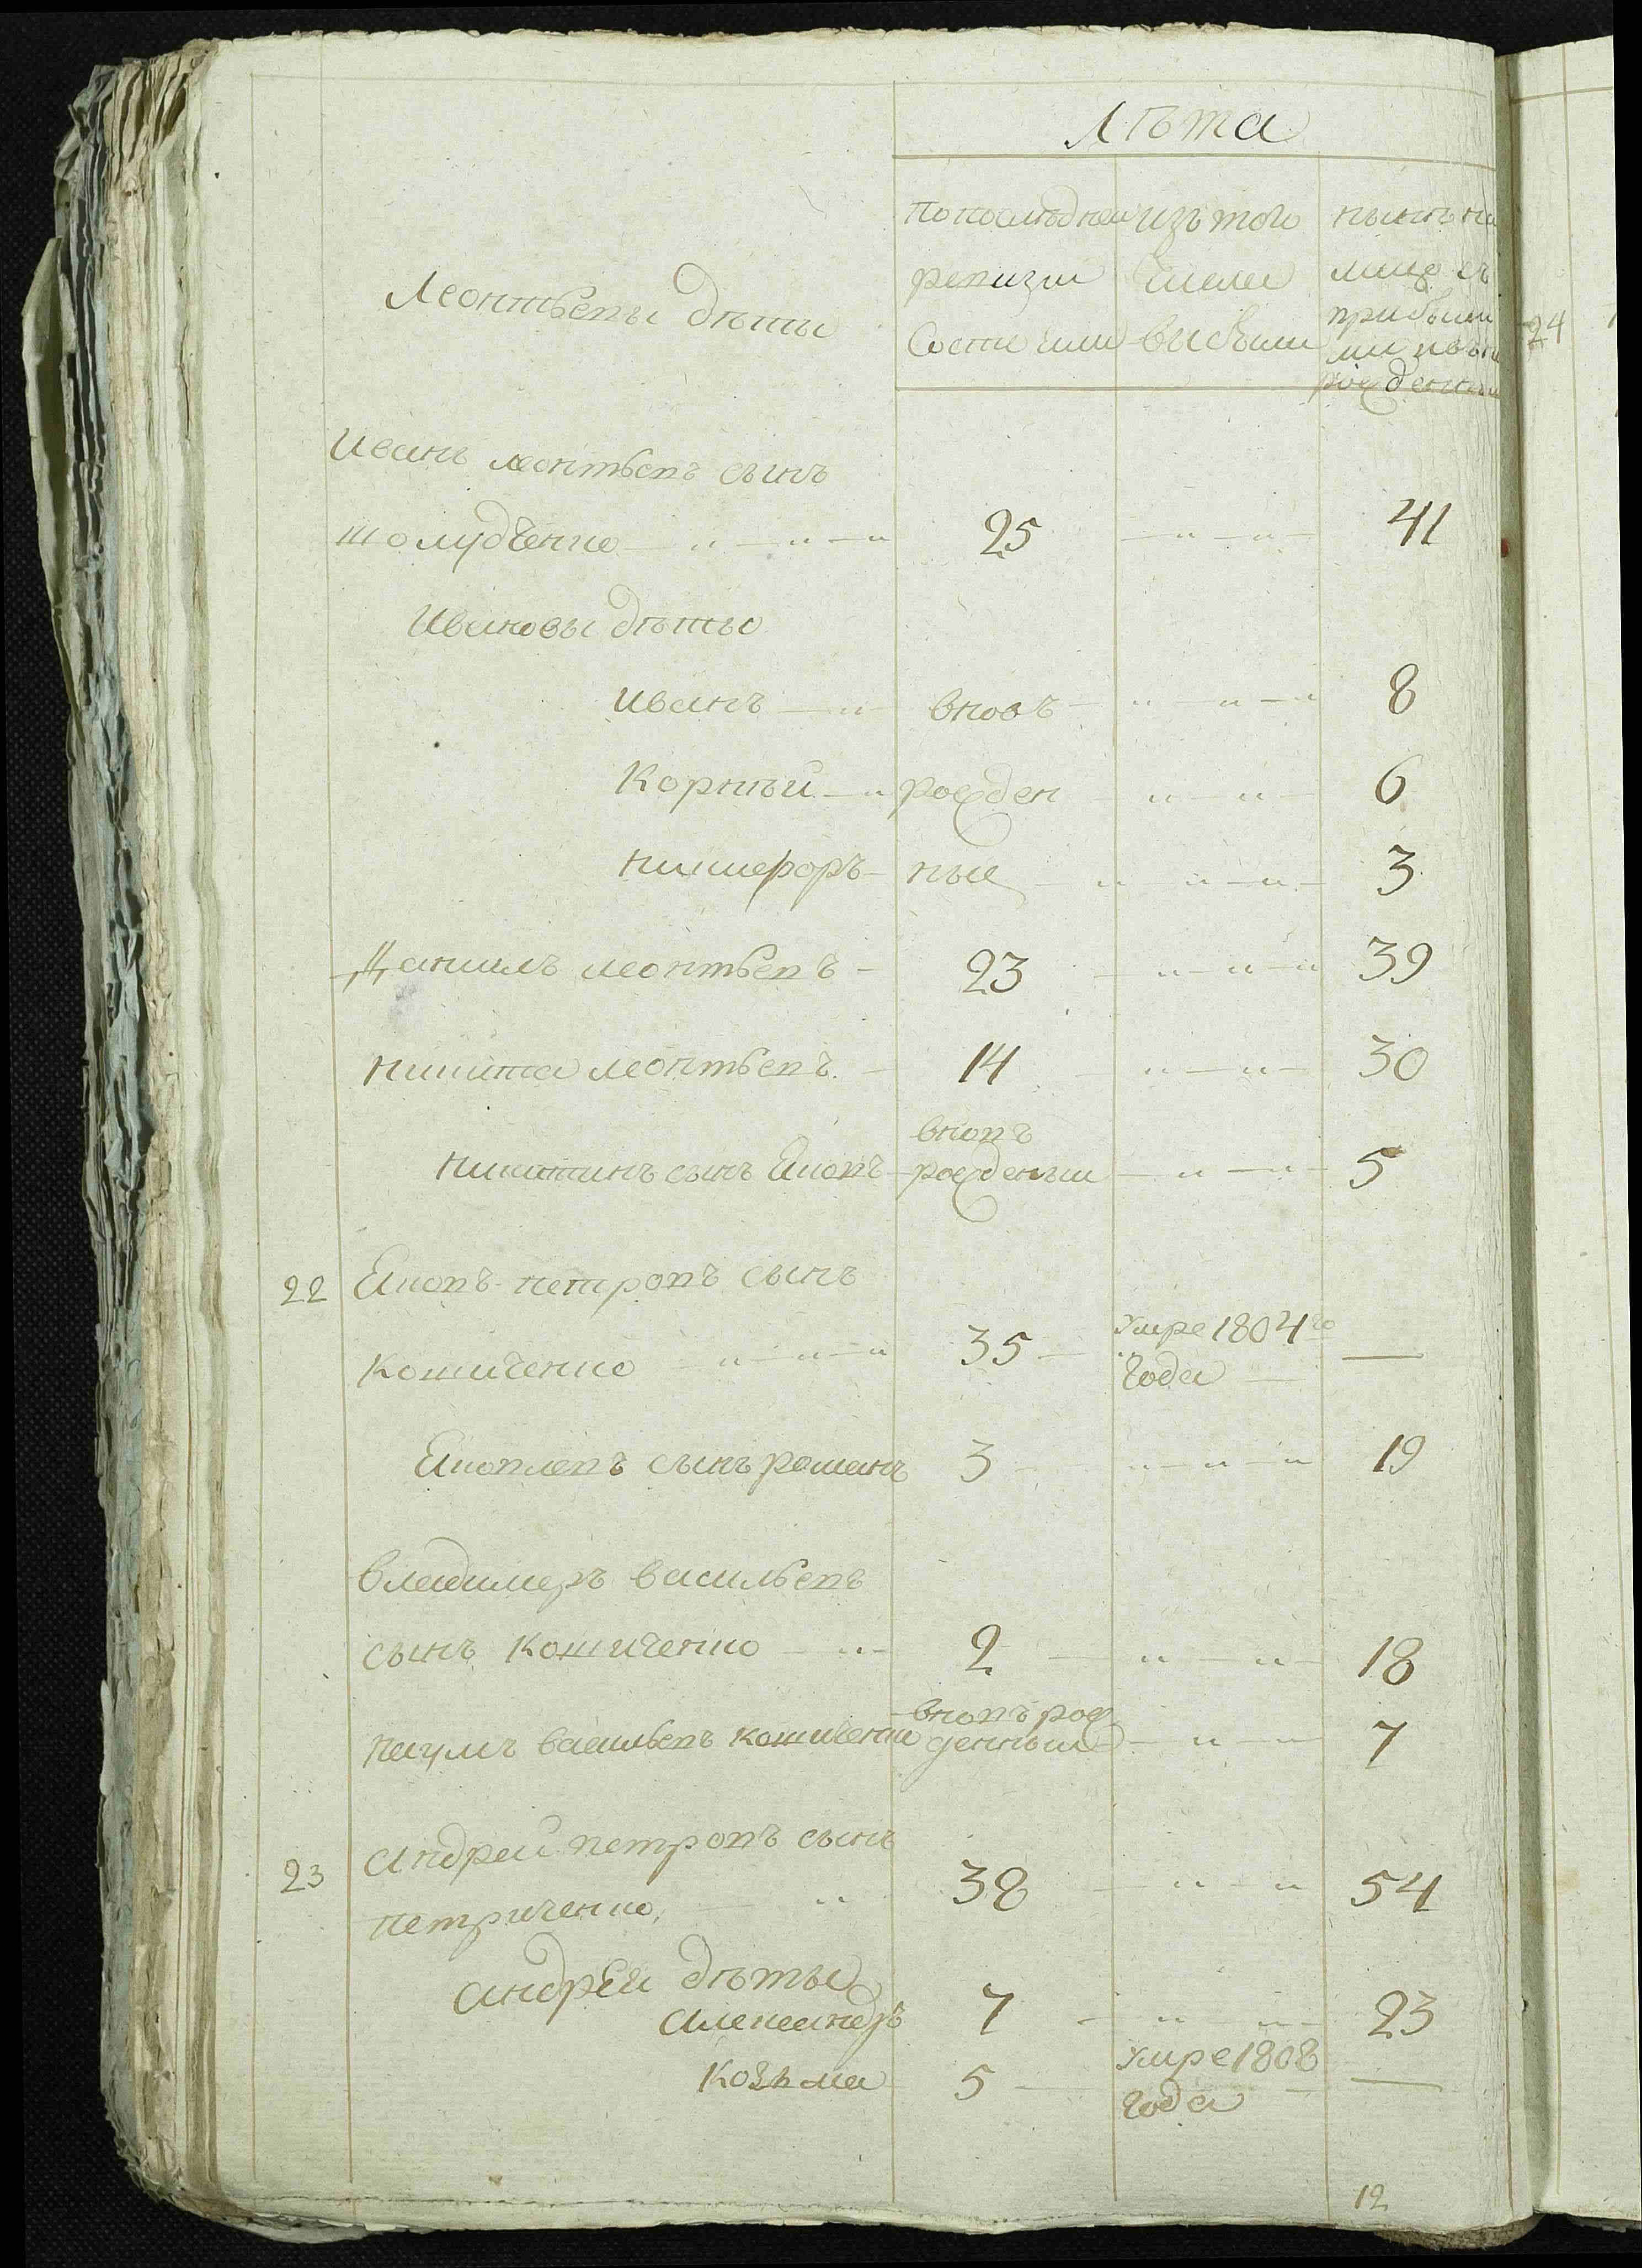 Лѣта
по последней
ревизи
Состояли
изъ того
Числа
выбыли
нынѣ на
лицо съ
прибыли
ми и внов
рожденны
24
Леонтьевы дѣты
Иванъ леонтьевъ сынъ
шолудченко 25 41
Ивановы дѣты
Иванъ вновъ 8
Корнѣй рожден 6
никифоръ ные 3
Данилъ леонтьевъ 23 39
никита леонтьевъ 14 30
вновъ
никитинъ сынъ Яковъ рожденыи 5
22 Яковъ петровъ сынъ
Кошиченко 35 умре 1804го года —
Яковлевъ сынъ романъ 3 19
владимеръ васильевъ
сынъ Кошиченко 2 18
наумъ васильевъ Кошиченко вновъ рожденныи 7
23 андрей петровъ сынъ
петриченко 38 54
андреи дѣты
александръ 7 23
Козьма 5 умре 1808 года —
12